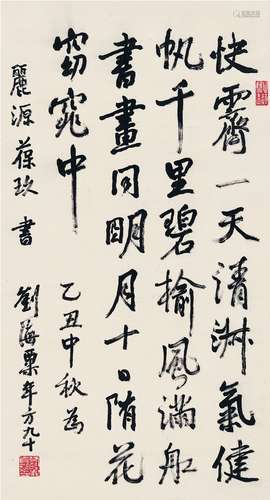 快霽一天清淑氣健
帆千里碧榆風滿船
書畫同明月十日隨花
窈窕中
乙丑中秋為
麗源葆玖書
劉海粟年方九十